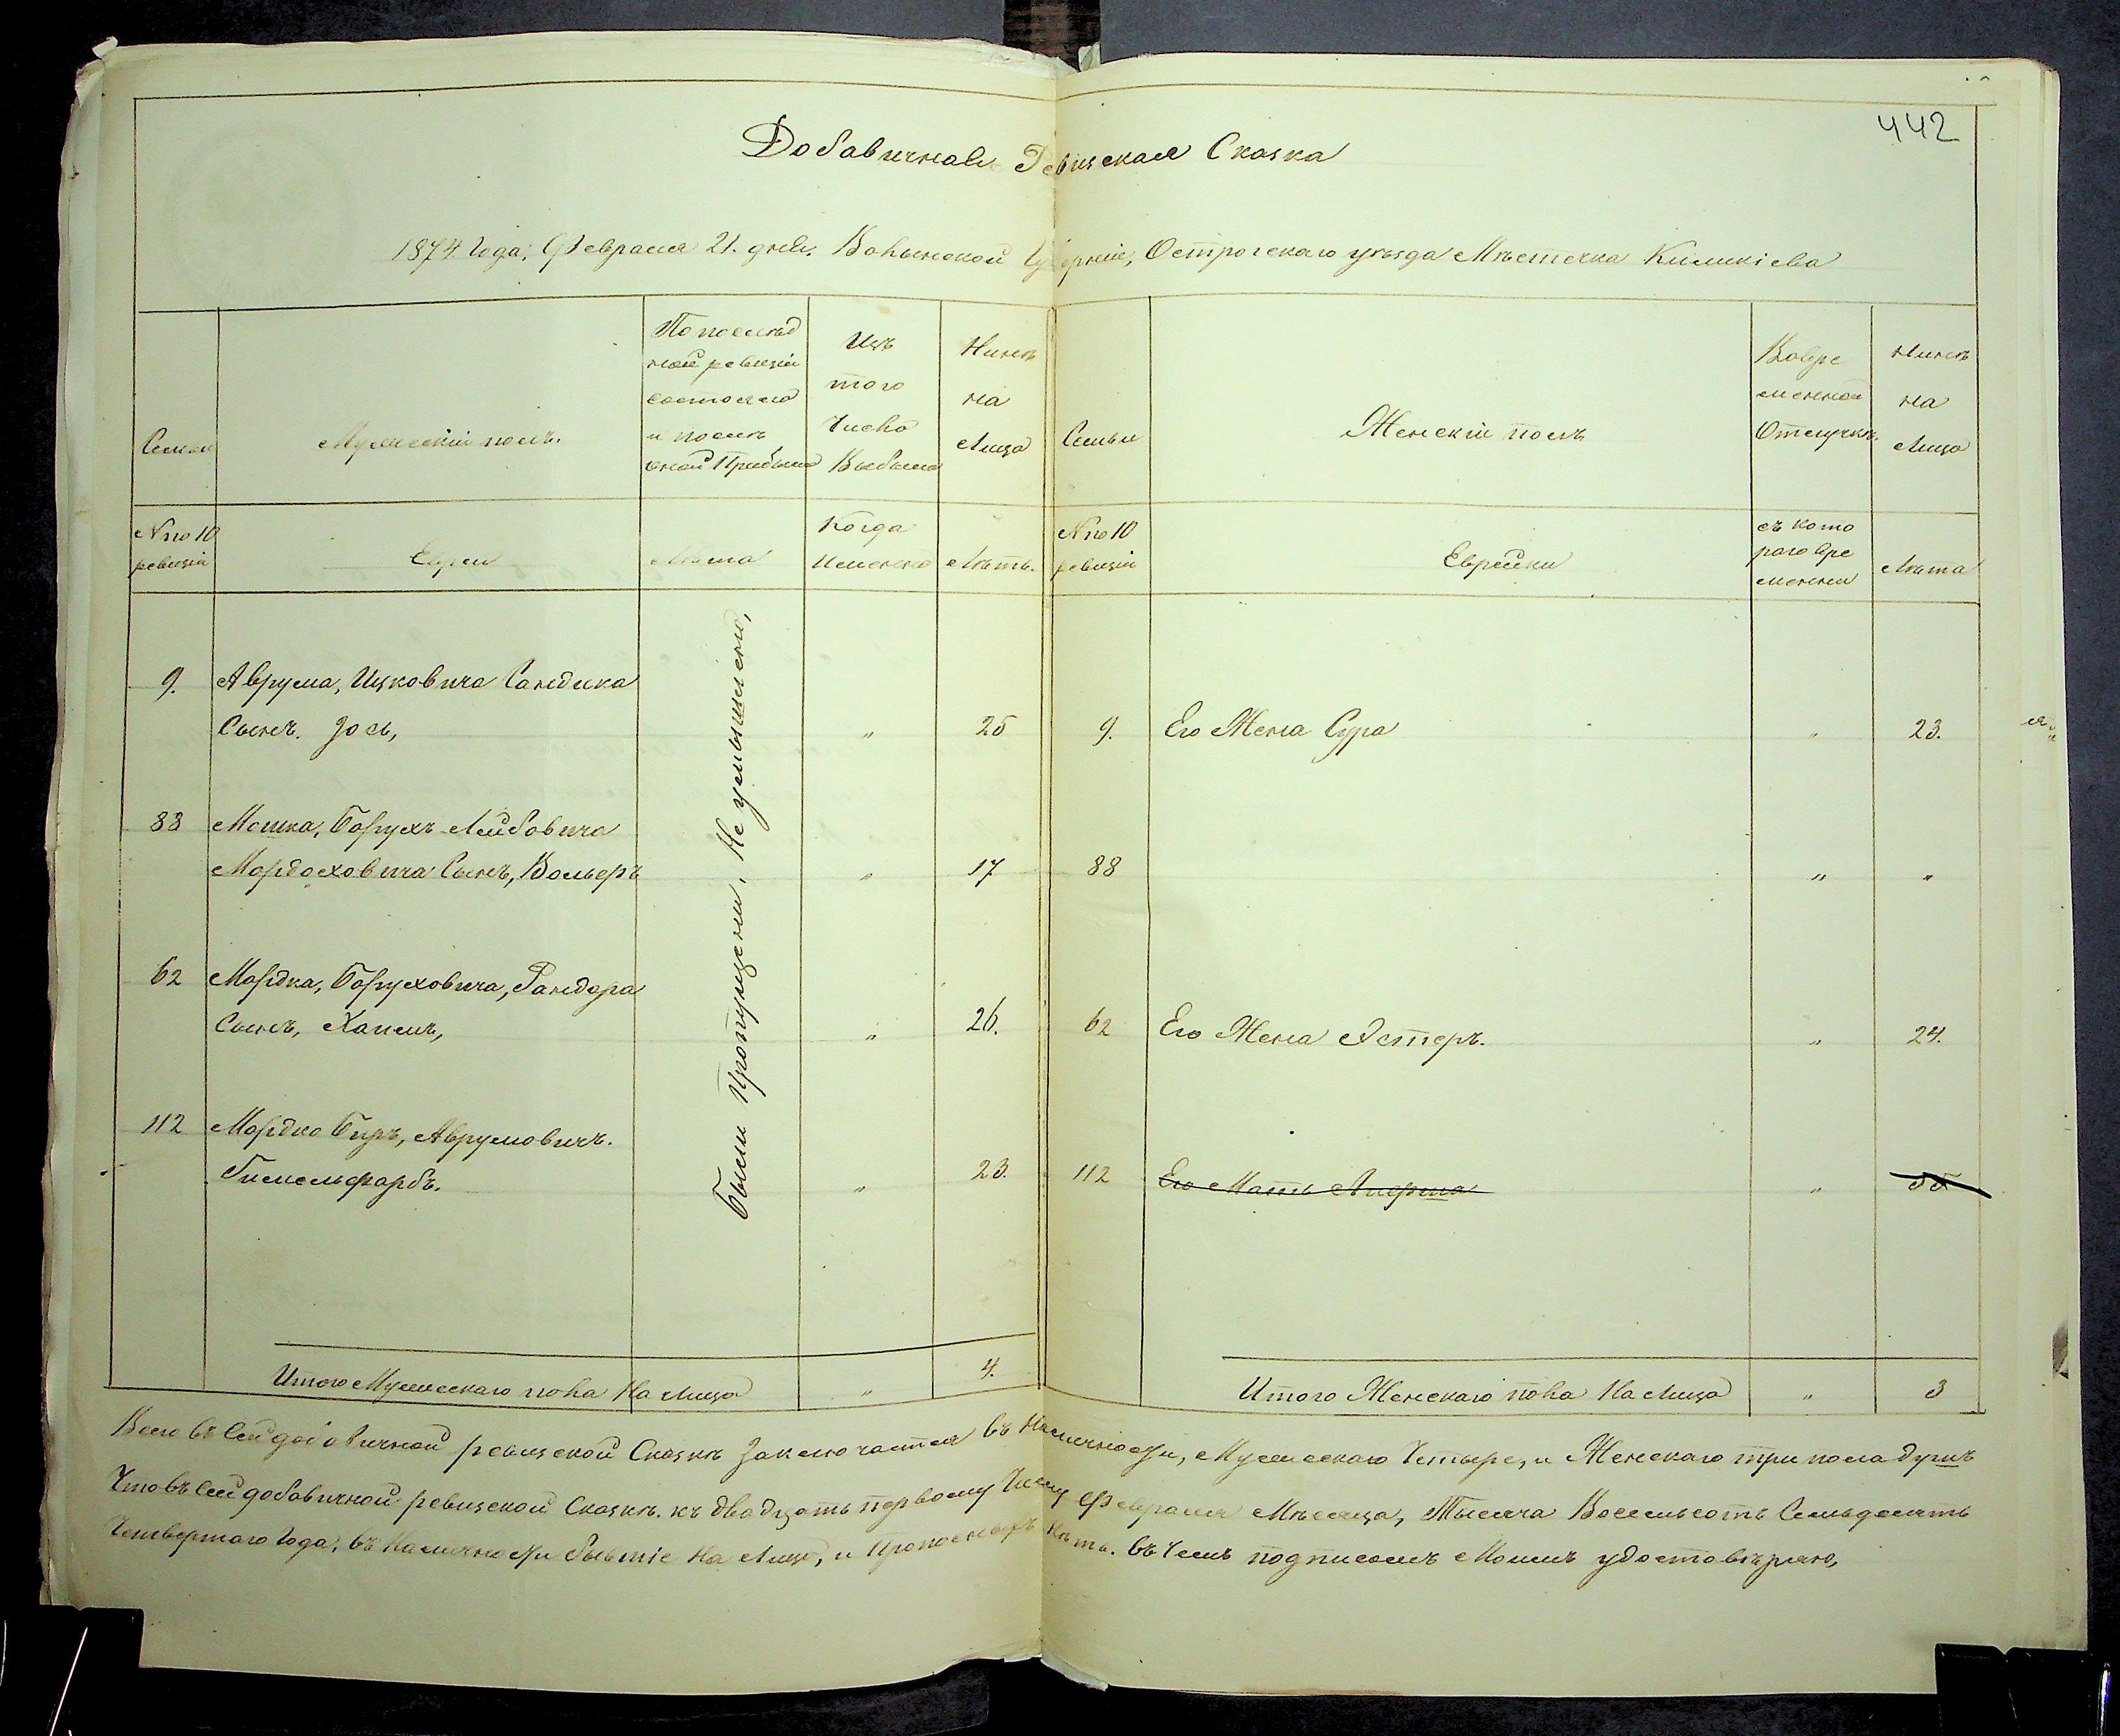 442
Добавичная Ревизская Сказка
1874 Года, Февраля 21. дня. Волынской Губерніи, Острогскаго уѣзда Мѣстечка Киликіева
Семьи
Мужескій полъ.
По послѣд
ней ревизіи
состояло
и послѣ
оной Прибыло
Изъ
того
Числа
Выбыло
Нынѣ
на
Лицо
Семьи
Женскій полъ
Вовре
менной
Отлучкѣ.
Нынѣ
на
Лицо
N по 10
ревизіи
Евреи
Лѣта
Когда
Именно
Лѣтъ.
N по 10
ревизіи
Еврейки
съ кото
раго вре
мении
Лѣта
Были Пропущени, Не умышлено,
9. Аврума, Ицковича Сандика
Сынъ. Зось, " 25 9. Его Жена Сура " 23.
88 Мошка, Борухъ Лейбовича
Мордоховича Сынъ, Вольфъ " 17 88 " "
62 Мордка, Боруховича, Гандора
Сынъ, Хапель, " 26. 62 Его Жена Эстеръ. " 24.
112 Мордко Беръ,Аврумовичъ.
Гимельфарбъ. " 23. 112 Его Мать "
Итого Мужескаго пола На Лицо " 4. Итого Женскаго пола На Лицо " 3
Всего въ Сей добавичной ревизской Сказкѣ Заключается въ Наличности, Мужескаго Четыре, и Женскаго три пола душъ
Что въ Сей добавичной ревизской Сказкѣ. къ двадцать первому Числу Февраля Мѣсяца, Тысяча Восемьсотъ Семьдесятъ
Четвертаго Года, въ Наличности бывшіе На Лицо, и Пропосныхъ нѣтъ. въ Чемъ подписомъ Моимъ удостовѣряю,